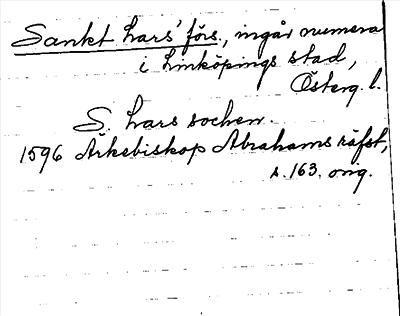 Sankt Lars' förs., ingår numera
i Linköpings stad,
Österg. l.
S. Lars socken.
1596 Ärkebiskop Abrahams räfst,
s. 163. orig.